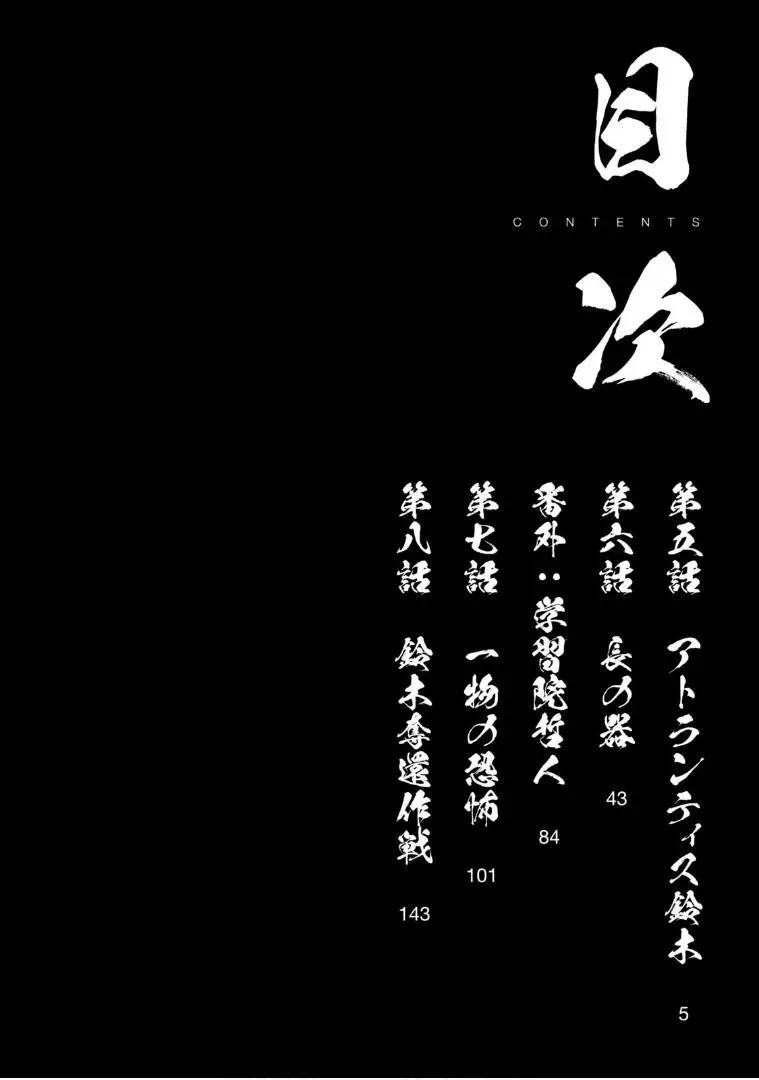 目次
CONTENTS
第五話 アトランティス鈴木 5
第六話 長の器 43
番外:学習院哲人 84
第七話 一物の恐怖 101
第八話 鈴木奪還作戦 143